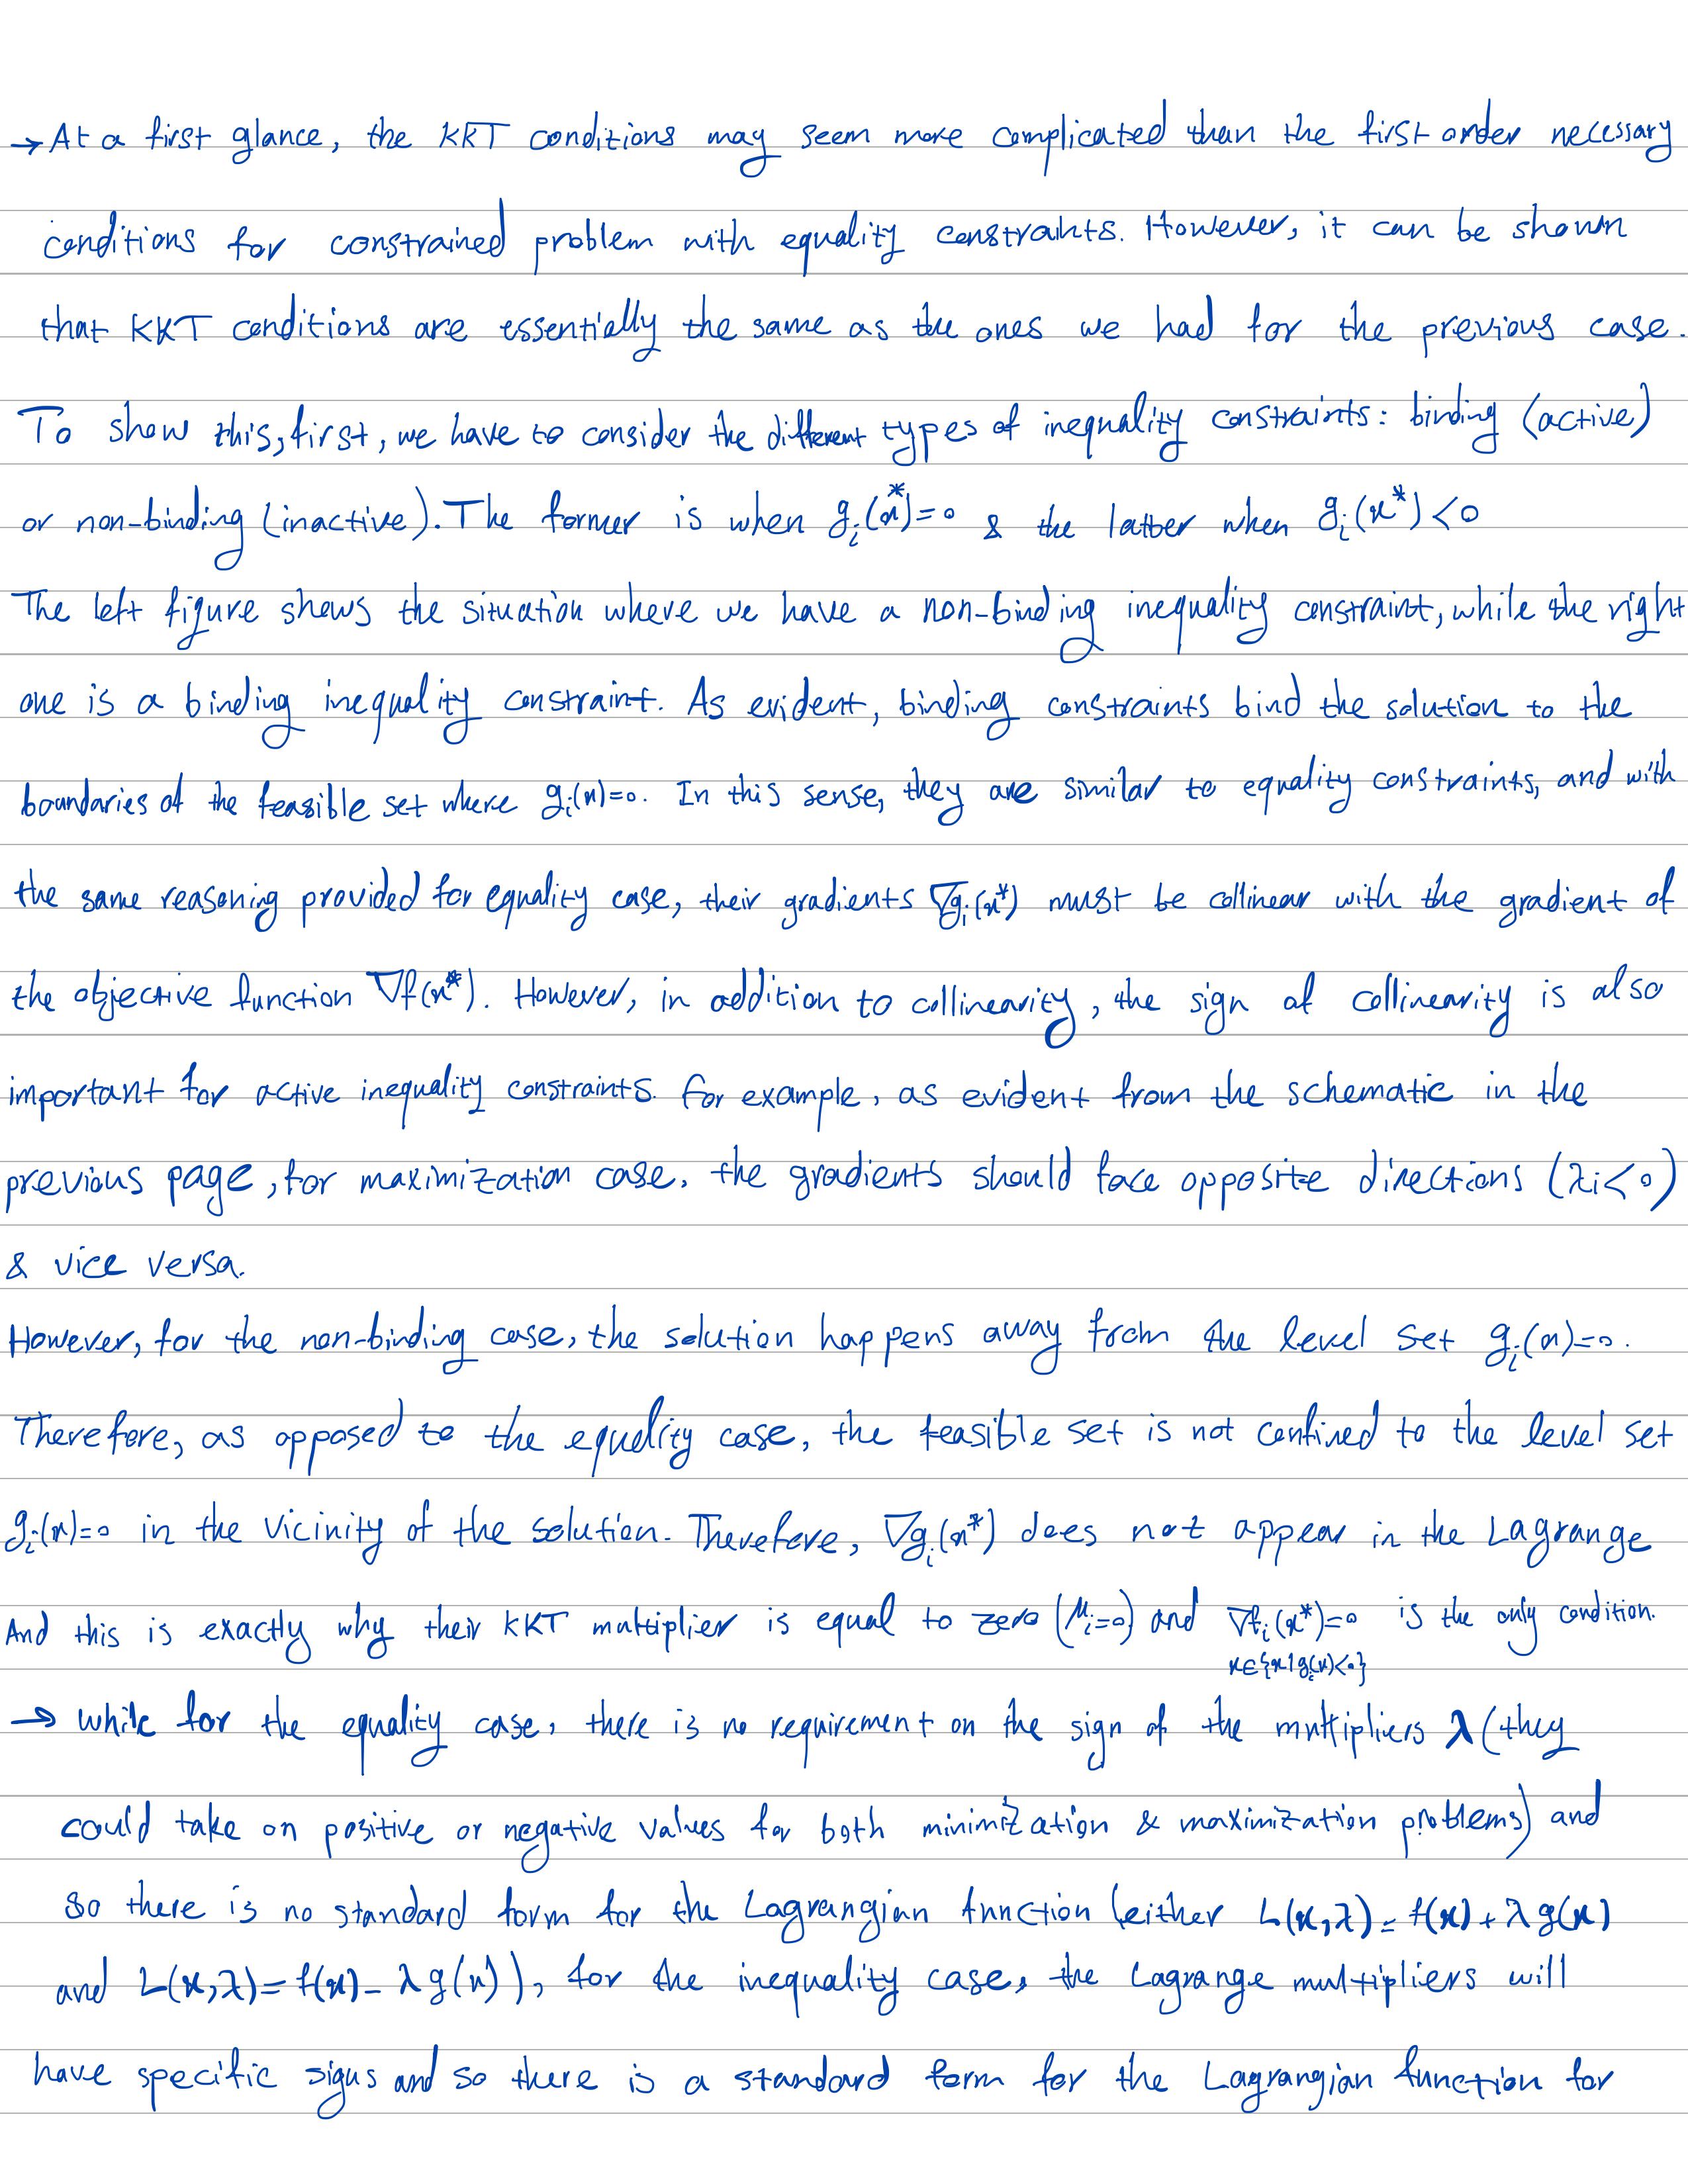 → At a first glance, the KKT conditions may seem more complicated than the first order necessary
conditions for constrained problem with equality constraints. However, it can be shown
that KKT conditions are essentially the same as the ones we had for the previous case.
To show this, first, we have to consider the different types of inequality constraints: binding (active)
or non-binding (inactive). The former is when gᵢ(x*)=0 & the latter when gᵢ(x*)<0
The left figure shows the situation where we have a non-binding inequality constraint, while the right
one is a binding inequality constraint. As evident, binding constraints bind the solution to the
boundaries of the feasible set where gᵢ(x)=0. In this sense, they are similar to equality constraints, and with
the same reasoning provided for equality case, their gradients ∇gᵢ(x*) must be collinear with the gradient of
the objective function ∇f(x*). However, in addition to collinearity, the sign of collinearity is also
important for active inequality constraints. For example, as evident from the schematic in the
previous page, for maximization case, the gradients should face opposite directions (λi<0)
& vice versa.
However, for the non-binding case, the solution happens away from the level set gᵢ(x)=0.
Therefore, as opposed to the equality case, the feasible set is not confined to the level set
gᵢ(x)=0 in the vicinity of the solution. Therefore, ∇gᵢ(x*) does not appear in the Lagrange
And this is exactly why their KKT multiplier is equal to zero (μᵢ=0) and ∇fᵢ(x*)=0 is the only condition.
x∈{x|gᵢ(x)<0}
→ while for the equality case, there is no requirement on the sign of the multipliers λ (they
could take on positive or negative values for both minimization & maximization problems) and
so there is no standard form for the Lagrangian function (either L(x,λ)=f(x)+λg(x)
and L(x,λ)=f(x)-λg(x)), for the inequality case, the Lagrange multipliers will
have specific signs and so there is a standard form for the Lagrangian function for